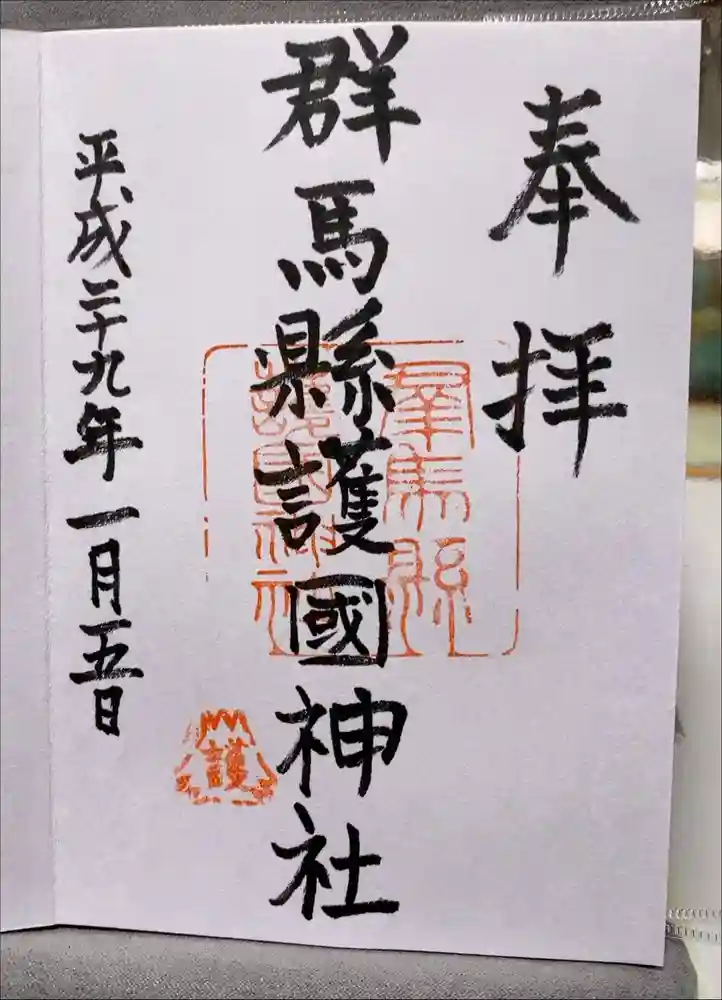 奉拝
群馬縣護國神社
群馬縣
護國神社
護
平成二十九年一月五日